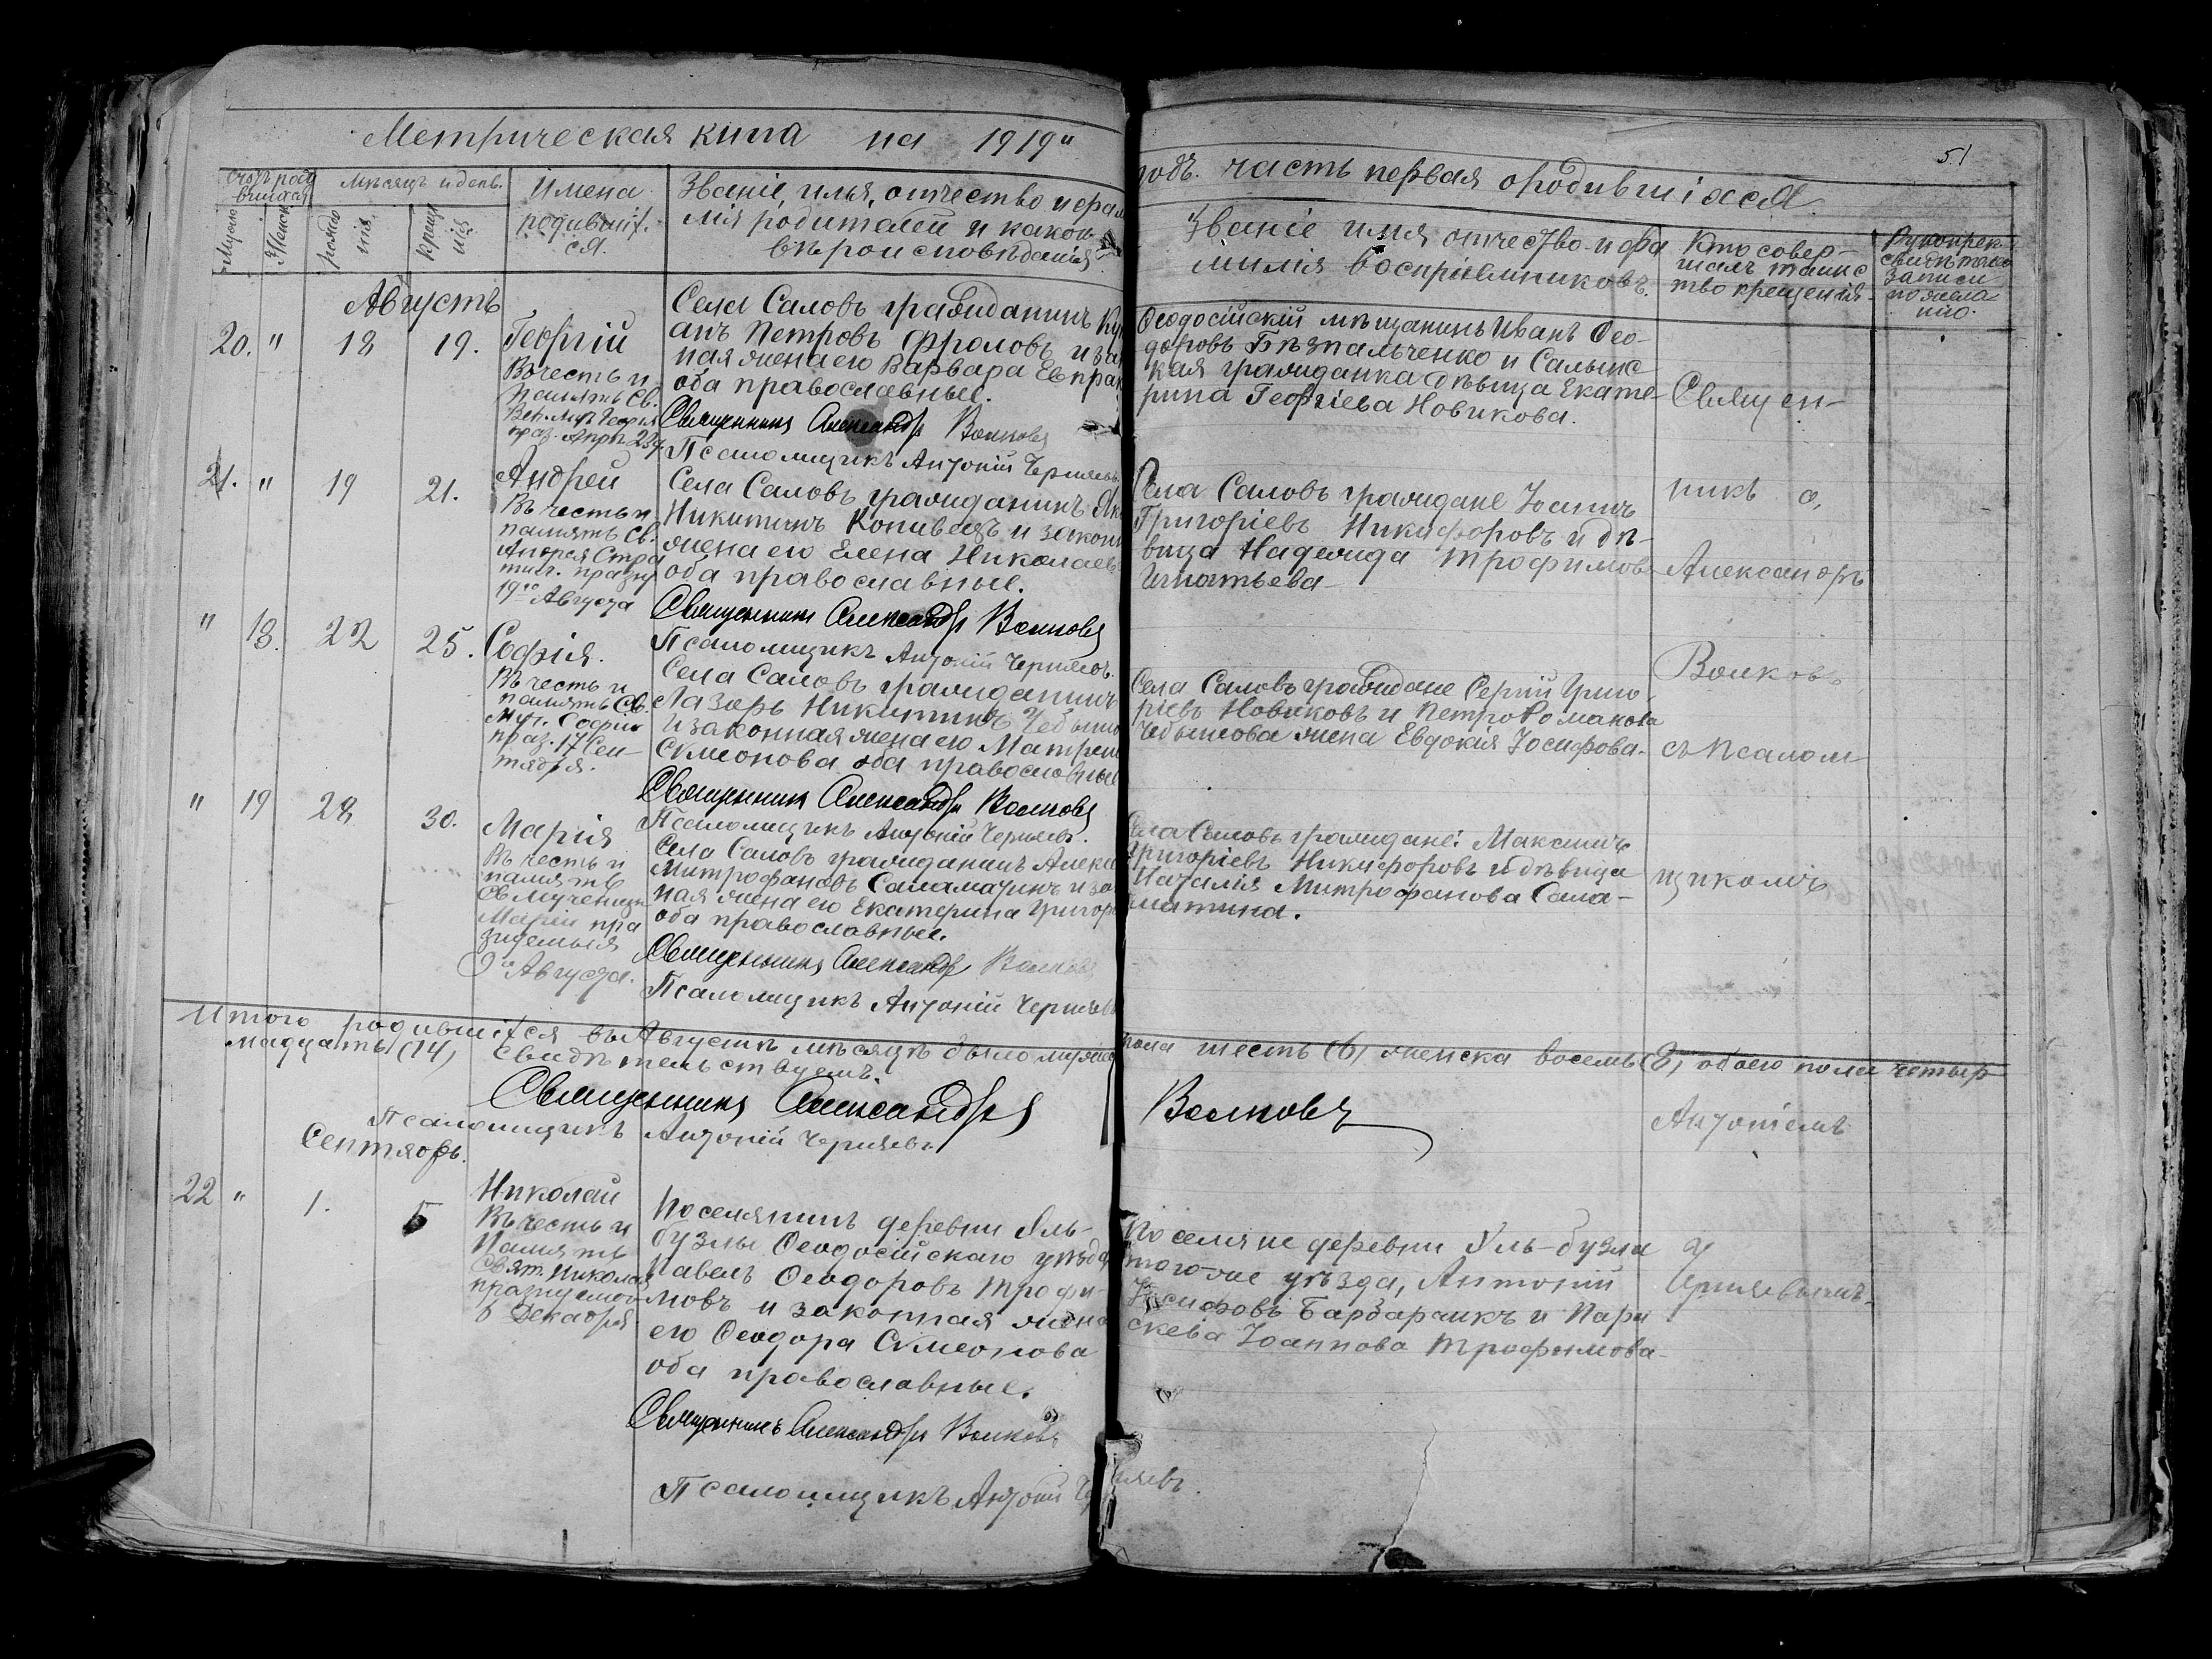 Метрическая книга на 1919"
годъ. часть первая ородившихся.
51
Счетъ роди
вшихся
Мѣсяцъ и день.
Имена
родивших.
ся.
Званіе, имя, отчество и фам
мія родителей и какого
вѣроисповѣданія
Мужес
Женск
рожде
нія
Креще
нія
Званіе имя отчество и фа
милія воспріемниковъ.
Кто совер-
шалъ таинс
тво крещенія
Рукоприк
свидѣтел
записи
по жела-
нію.
Августъ
20. " 18 19.
Георгій
Въ честь и
память Св.
Вел. Муч. Георгія
праз. Апрѣ 23
Села Саловъ гражданинъ
анъ Петровъ Фроловъ и за
ная жена его Варвара Евпрак
оба православные.
Священникъ Александръ Волковъ
Псаломщикъ Антоній Черняевъ.
Ѳеодосійскій мѣщанинъ Иванъ Ѳео-
доровъ Бѣзпальченко и Салынс
кая гражданка дѣвица Екате-
рина Георгіева Новикова.
Священ-
21. " 19 21.
Андрей
Въ честь и
память Св.
Андрея Стра
тил. празн
19го Августа
Села Саловъ гражданинъ Як
Никитинъ Копивецъ и законн
жена его Елена Николаев
оба православные.
Священникъ Александръ Волковъ
Псаломщикъ Антоній Черняевъ.
Села Саловъ граждане Іосифъ
Григоріевъ Никифоровъ и дѣ-
вица Надежда Трофимов
Игнатьева
никъ о.
Александръ
" 18. 22 25.
Софія.
Въ честь и
память Св.
Муч. Софіи
праз. 17 Сен-
тября.
Села Саловъ гражданинъ
Лазарь Никитинъ Чебыше
и законная жена его Матрен
Сѵмеонова оба православные
Священникъ Александръ Волковъ
Псаломщикъ Антоній Черняевъ.
Села Саловъ граждане Сергій Григо
ріевъ Новиковъ и Петра Романова
Чебышова жена Евдокія Іосифова.
Волковъ
съ псалом
" 19 28 30.
Марія
Въ честь и
память
Св Мученицы
Маріи пра
зднуемыя
9го Августа.
Села Саловъ гражданинъ Алекс
Митрофановъ Саламатинъ и за
ная жена его Екатерина Григор
оба православные.
Священникъ Александръ Волковъ
Псаломщикъ Антоній Черняевъ
Села Саловъ граждане: Максимъ
Григоріевъ Никифоровъ и дѣвица
Наталія Митрофанова Сала-
матина.
щикомъ
Итого родившихся въ Августѣ мѣсяцѣ было мужес
пола шесть (6) женска восемь (8) обоего пола четыр
надцать (14) Свидѣтельствуемъ.
Священникъ Александръ
Волковъ
Псаломщикъ Антоній Черняевъ.
Антоніемъ
Сентябрь.
22 " 1. 5
Николай
Въ честь и
Память
Свят. Николая
празнуемо
6 Декабря
Поселянинъ деревни Яль-
бузлы Ѳеодосійскаго уѣзда
Павелъ Ѳеодоровъ Трофи-
мовъ и законная жена
его Ѳеодора Сѵмеонова
оба православные.
Священникъ Александръ Волковъ
Псаломщикъ Антоній Черняевъ.
Поселяне деревни Яль-бузлы
того-же уѣзда, Антоній
Іосифовъ Барбарчикъ и Пара
скева Іоаннова Трофимова
Черняевымъ.